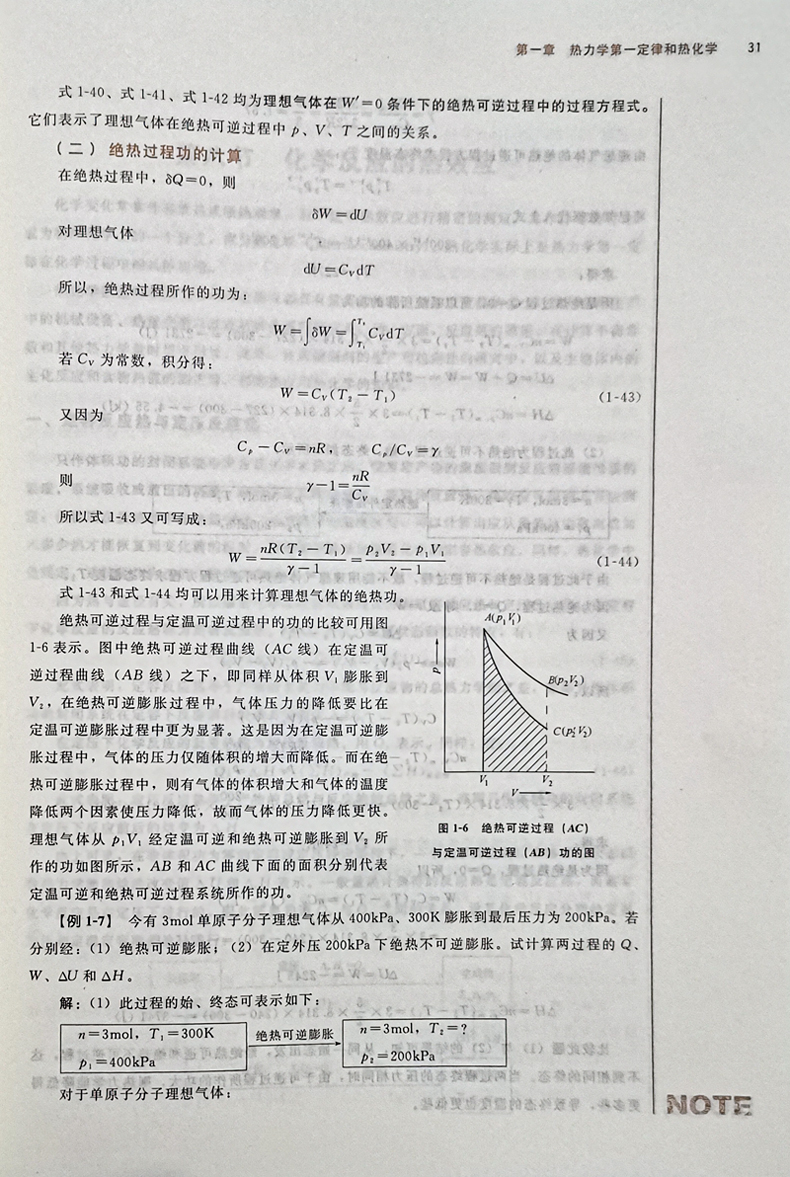 第一章 热力学第一定律和热化学 31
式 1-40、式 1-41、式 1-42 均为理想气体在 W′=0 条件下的绝热可逆过程中的过程方程式。
它们表示了理想气体在绝热可逆过程中 p、V、T 之间的关系。
(二) 绝热过程功的计算
在绝热过程中，δQ=0，则
δW=dU
对理想气体
dU=C_V dT
所以，绝热过程所作的功为：
W=∫δW=∫_{T₁}^{T₂} C_V dT
若 C_V 为常数，积分得：
W=C_V(T₂-T₁) (1-43)
又因为
C_p-C_V=nR， C_p/C_V=γ
则 γ-1=nR/C_V
所以式 1-43 又可写成：
W=nR(T₂-T₁)/(γ-1)=(p₂V₂-p₁V₁)/(γ-1) (1-44)
式 1-43 和式 1-44 均可以用来计算理想气体的绝热功。
绝热可逆过程与定温可逆过程中的功的比较可用图
1-6 表示。图中绝热可逆过程曲线（AC 线）在定温可
逆过程曲线（AB 线）之下，即同样从体积 V₁ 膨胀到
V₂，在绝热可逆膨胀过程中，气体压力的降低要比在
定温可逆膨胀过程中更为显著。这是因为在定温可逆膨
胀过程中，气体的压力仅随体积的增大而降低。而在绝
热可逆膨胀过程中，则有气体的体积增大和气体的温度
降低两个因素使压力降低，故而气体的压力降低更快。
理想气体从 p₁V₁ 经定温可逆和绝热可逆膨胀到 V₂ 所
作的功如图所示，AB 和 AC 曲线下面的面积分别代表
定温可逆和绝热可逆过程系统所作的功。
A(p₁V₁)
B(p₂V₂)
C(p₂′V₂)
p
V₁ V₂
V
图 1-6 绝热可逆过程（AC）
与定温可逆过程（AB）功的图
【例 1-7】 今有 3mol 单原子分子理想气体从 400kPa、300K 膨胀到最后压力为 200kPa。若
分别经：（1）绝热可逆膨胀；（2）在定外压 200kPa 下绝热不可逆膨胀。试计算两过程的 Q、
W、ΔU 和 ΔH。
解：（1）此过程的始、终态可表示如下：
n=3mol，T₁=300K 绝热可逆膨胀 n=3mol，T₂=?
p₁=400kPa p₂=200kPa
对于单原子分子理想气体：
NOTE